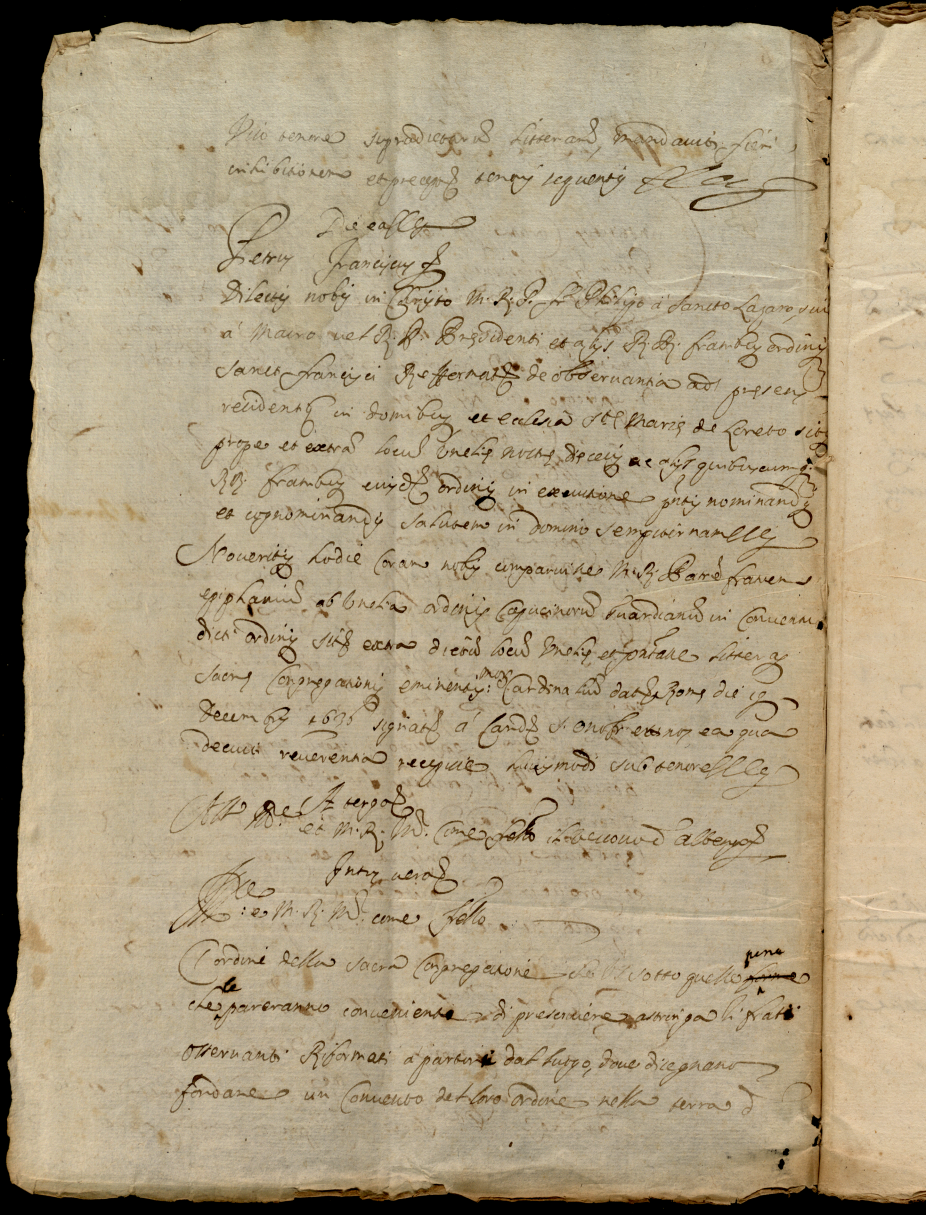 Viso tenore supradictarum litterarum mandavit fieri
inhibitionem et preceptum tenoris sequentis
Die ea
Petrus Franciscus
Dilectis nobis in Christo M. R. P. fr. Philippo a Sancto Lazaro, sive
a Mairo vel R. P. Presidenti et alijs R. R. fratribus ordinis
Sancti francisci Reffermator de observantia ad presens
residentes in domibus et eclesia Ste Marie de Loreto sitis
prope et extra locum Unelie nostre diocesis ac alijs quibuscumq.
RR. fratribus eiusdem ordinis in executione pntis nominandis
et cognominandis salutem in domino sempiternam
Noveritis hodie coram nobis comparuisse M. R. Patrem fratrem
epiphanium ab Unelia ordinis Capucinorum Guardianum in Conventu
dicti ordinis sito extra dictum locum Unelie et litteras
Sacre Congregationis eminentiss: Cardinalium datas Rome die 19
Decembris 1636 signatas a Card. S. Onofr. et nos ea qua
decuit reverentia recepisse huiusmodi sub tenore
A tergo
et M. R. Mr. come fello il vescovo d'Albenga
Intus vero
e M. R. Mr. come fello
L'ordine della sacra Congregatione che sotto quelle pene
che le pareranno conveniente di prescrivere astringa li frati
osservanti Riformati a partirsi dal luogo, dove disegnano
fondare un Convento del loro ordine nella terra d